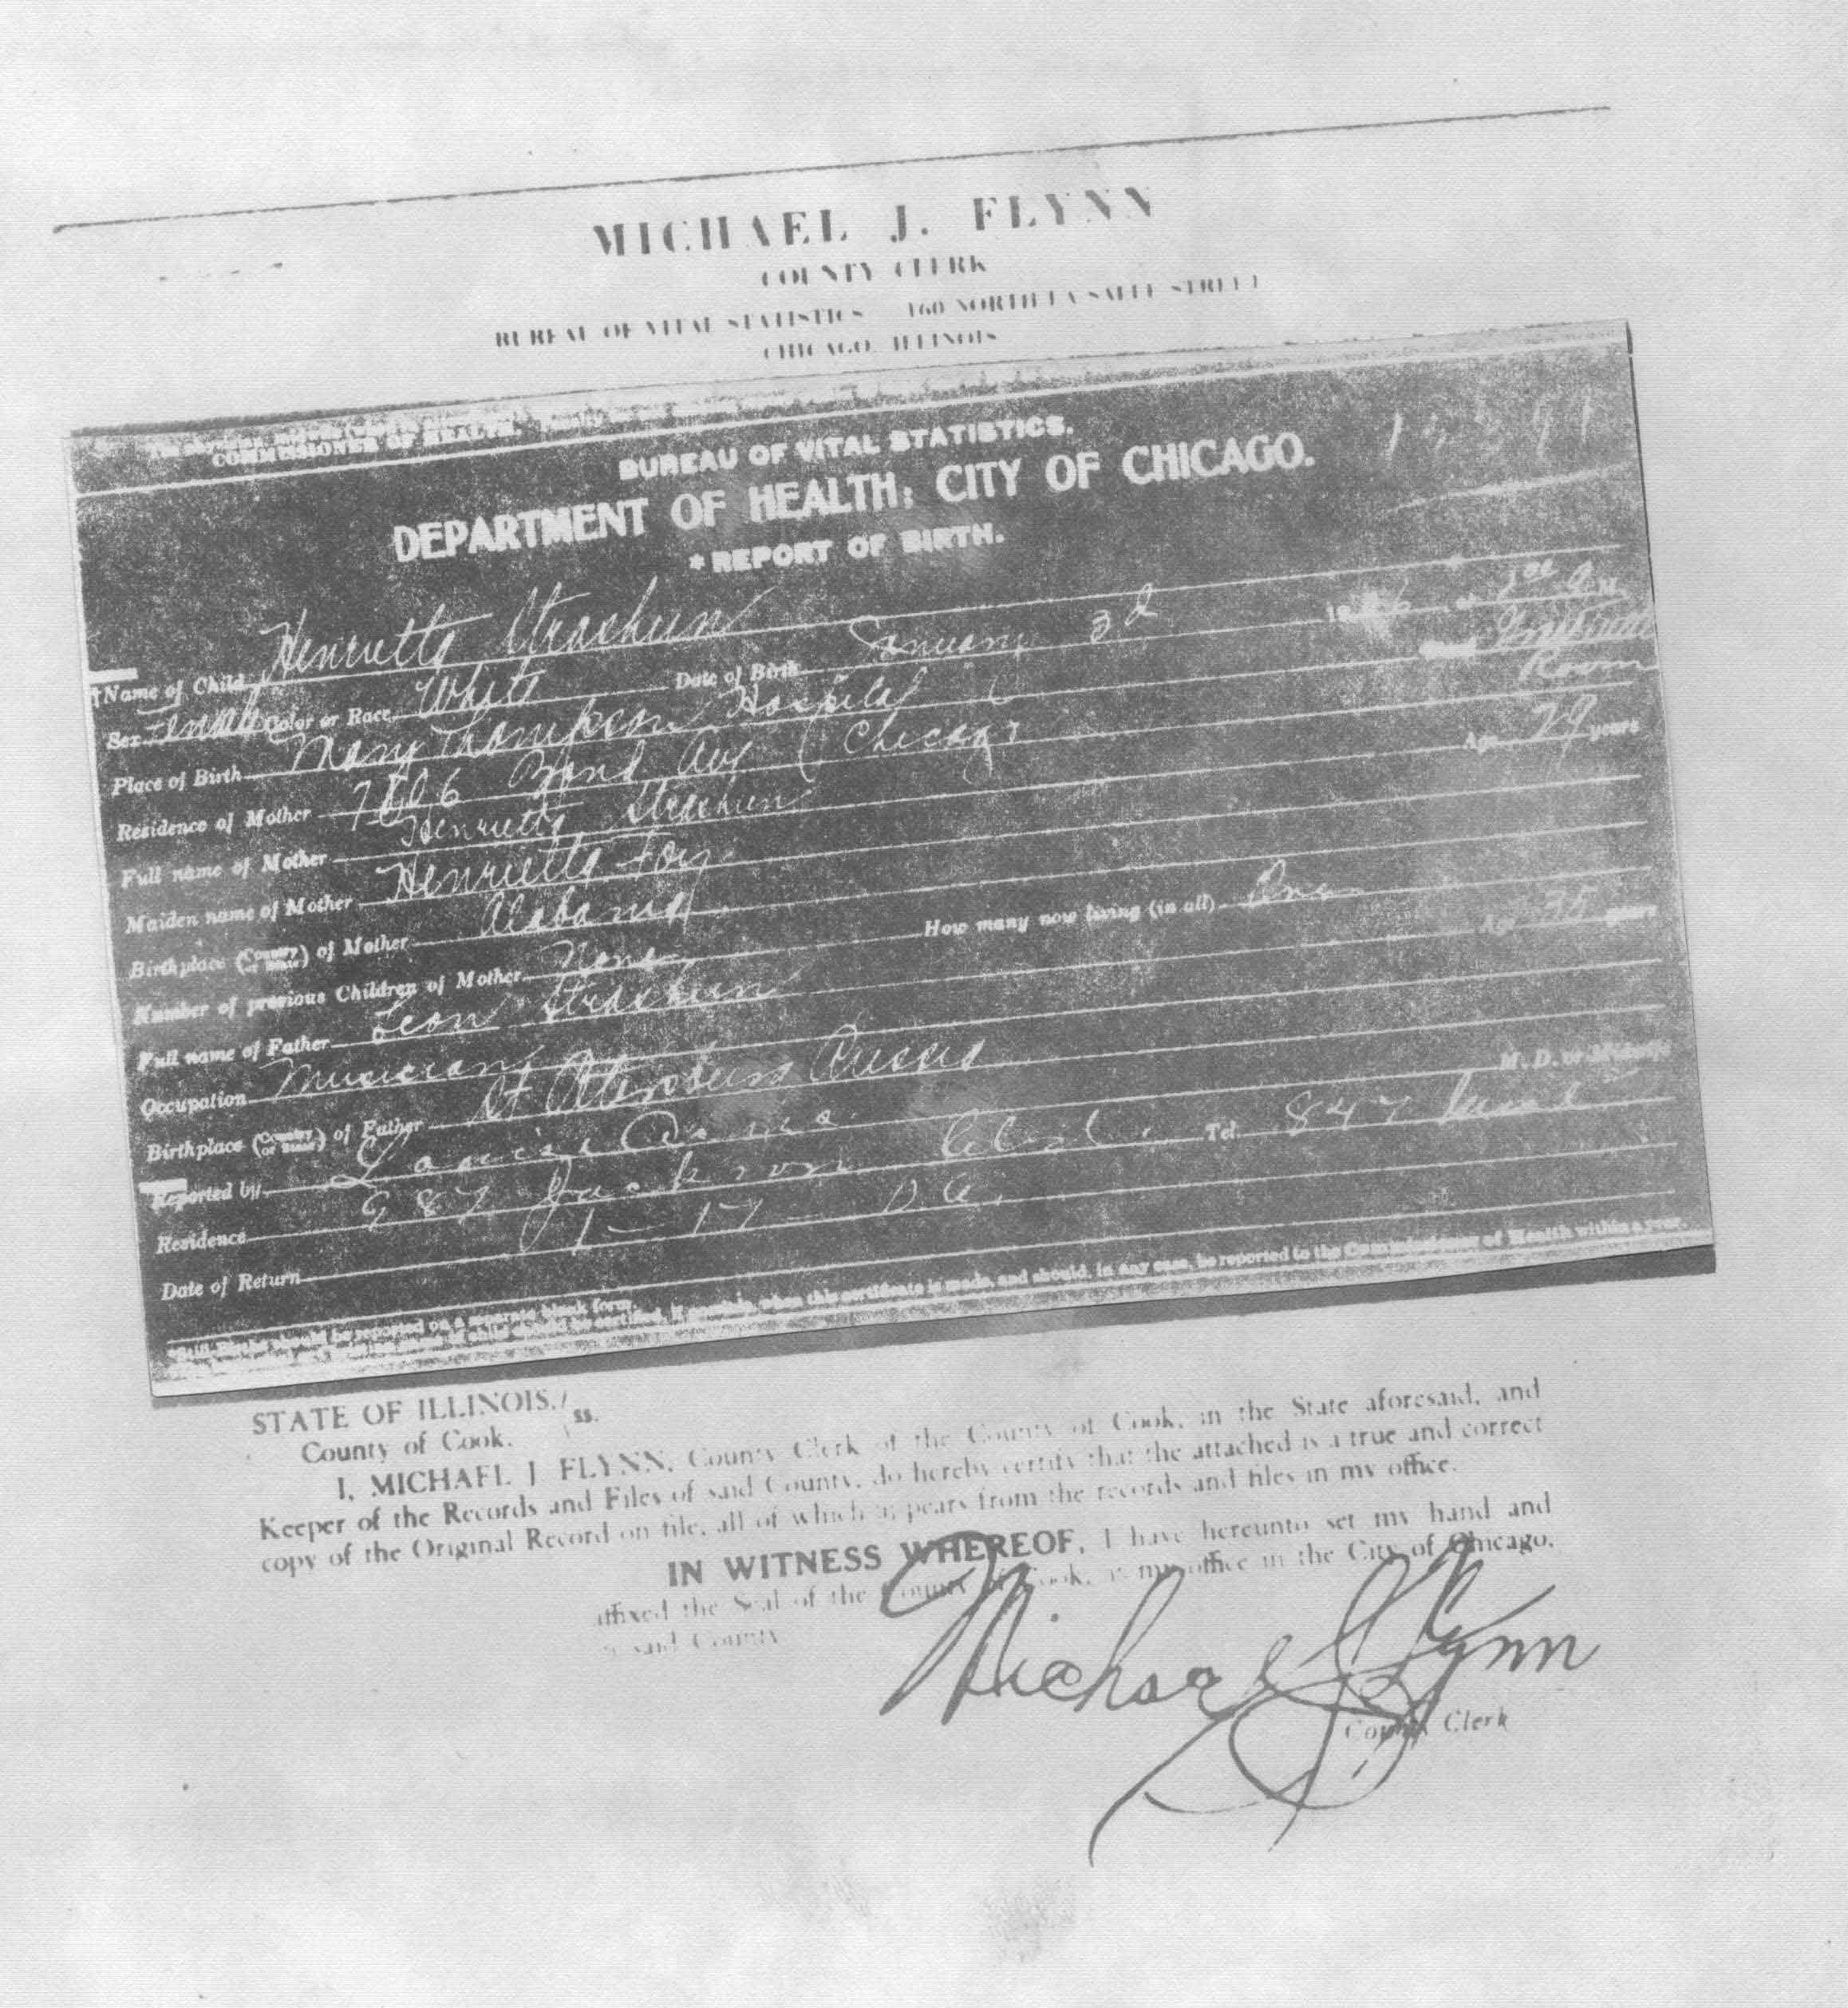 MICHAEL J. FLYNN
COUNTY CLERK
BUREAU OF VITAL STATISTICS 160 NORTH LA SALLE STREET
CHICAGO, ILLINOIS
COMMISSIONER OF HEALTH
BUREAU OF VITAL STATISTICS.
DEPARTMENT OF HEALTH: CITY OF CHICAGO.
*REPORT OF BIRTH.
†Name of Child Henrietta Strachun
Sex Female Color or Race White Date of Birth January 3d
Place of Birth Mary Thompson Hospital
Residence of Mother Bond Ave (Chicago Room
Full name of Mother Henrietta Strachun Age 29 years
Maiden name of Mother Henrietta Foy
Birthplace (Country or State) of Mother Alabama
Number of previous Children of Mother None How many now living (in all) One
Full name of Father Leon Strachun Age 35 years
Occupation Musician
Birthplace (Country or State) of Father St Petersburg Russia
Reported by M. D. or Midwife
Residence 987 Jackson Tel. 847
Date of Return 1-17
be reported on a separate blank form.
if possible, when this certificate is made, and should, in any case, be reported to the Commissioner of Health within a year.
STATE OF ILLINOIS, } ss.
County of Cook.
I, MICHAEL J FLYNN, County Clerk of the County of Cook, in the State aforesaid, and
Keeper of the Records and Files of said County, do hereby certify that the attached is a true and correct
copy of the Original Record on file, all of which appears from the records and files in my office.
IN WITNESS WHEREOF, I have hereunto set my hand and
affixed the Seal of the County of Cook, at my office in the City of Chicago,
in said County.
Michael J Flynn
County Clerk